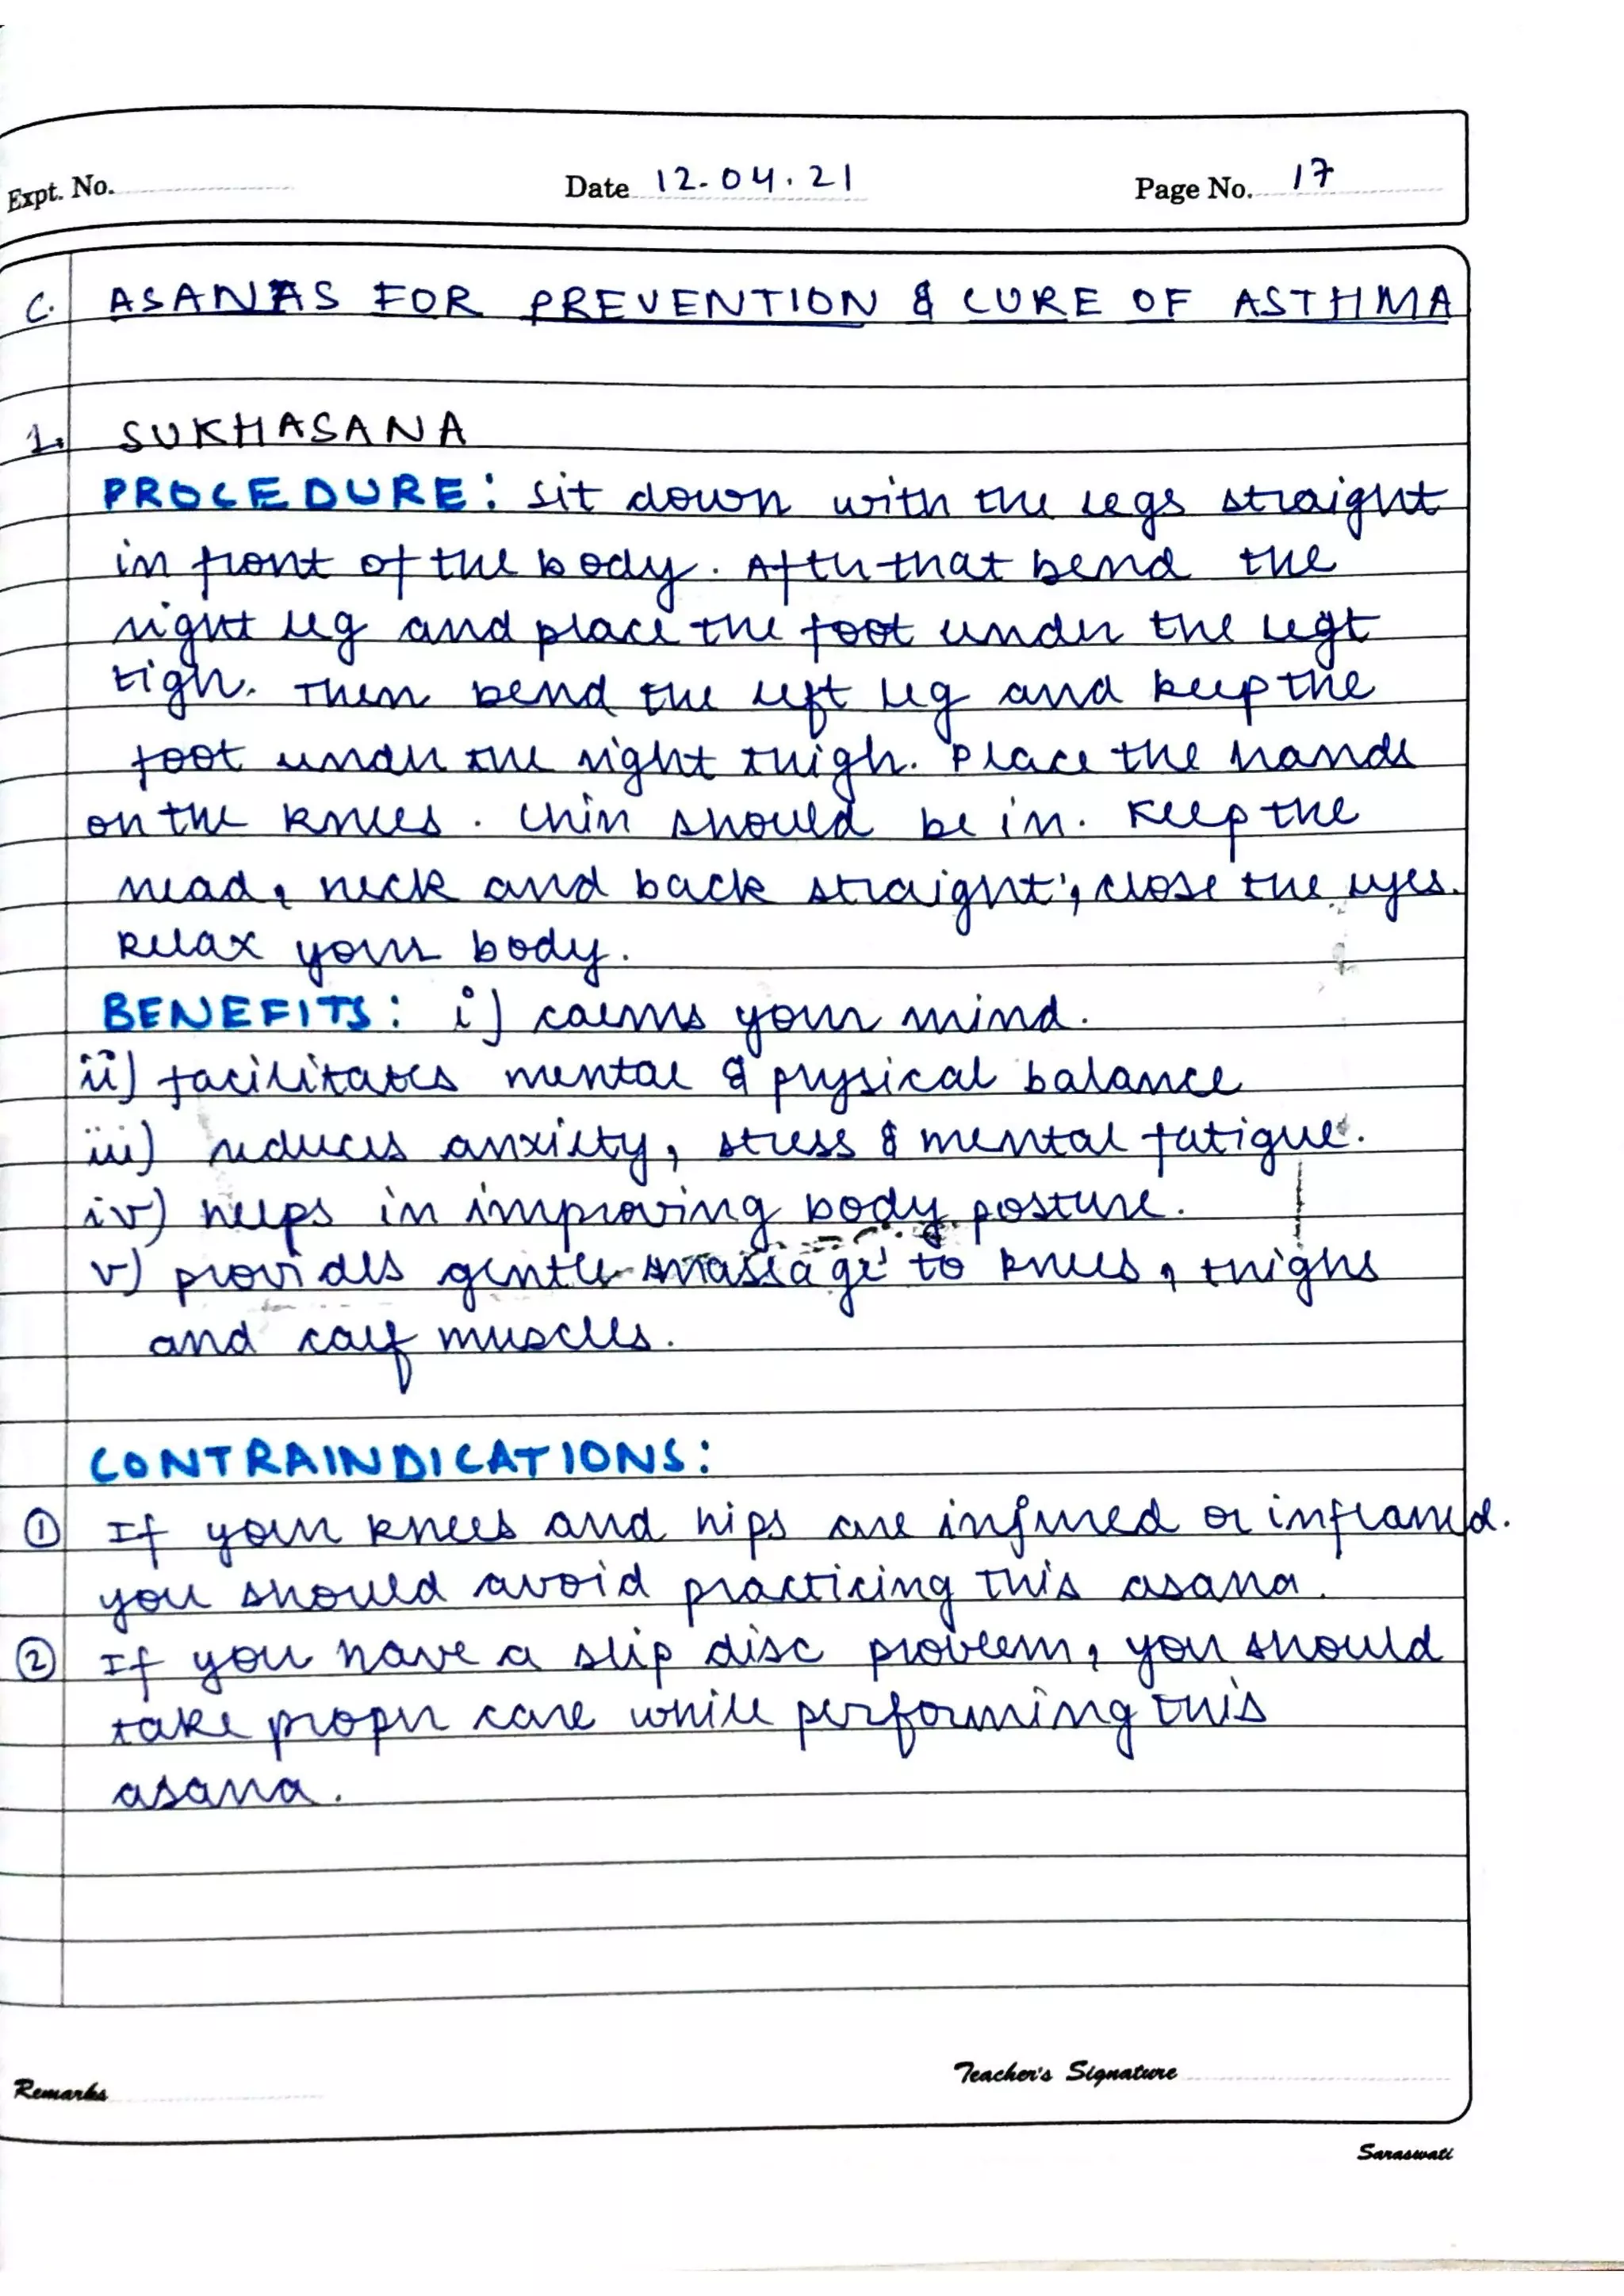 Expt. No. Date 12.04.21 Page No. 17
C. ASANAS FOR PREVENTION & CURE OF ASTHMA
1. SUKHASANA
PROCEDURE: sit down with the legs straight
in front of the body. After that bend the
right leg and place the foot under the legt
tigh. Then bend the left leg and keep the
foot under the right thigh. Place the hands
on the knees. Chin should be in. Keep the
head, neck and back straight; close the eyes.
Relax your body.
BENEFITS: i) calms your mind.
ii) facilitates mental & physical balance
iii) reduces anxiety, stress & mental fatigue.
iv) helps in improving body posture.
v) provides gentle massage to knees, thighs
and calf muscles.
CONTRAINDICATIONS:
① If your knees and hips are injured or inflamed.
you should avoid practicing this asana.
② If you have a slip disc problem, you should
take proper care while performing this
asana.
Remarks Teacher's Signature
Saraswati